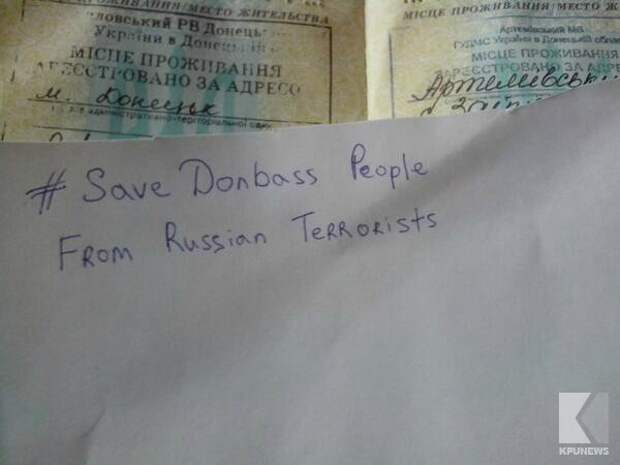 ПРОЖИВАННЯ/МЕСТО ЖИТЕЛЬСТВА
ловський РВ Донець
України в Донецькій
МІСЦЕ ПРОЖИВАННЯ
АРЕЄСТРОВАНО ЗА АДРЕСО
м. Донецьк
МІСЦЕ ПРОЖИВАННЯ/МЕСТО
Артемівський МВ
України в Донецькій
МІСЦЕ ПРОЖИВАННЯ
АРЕЄСТРОВАНО ЗА АДРЕСО
Артемівськ
# Save Donbass People
From Russian Terrorists
KPUNEWS